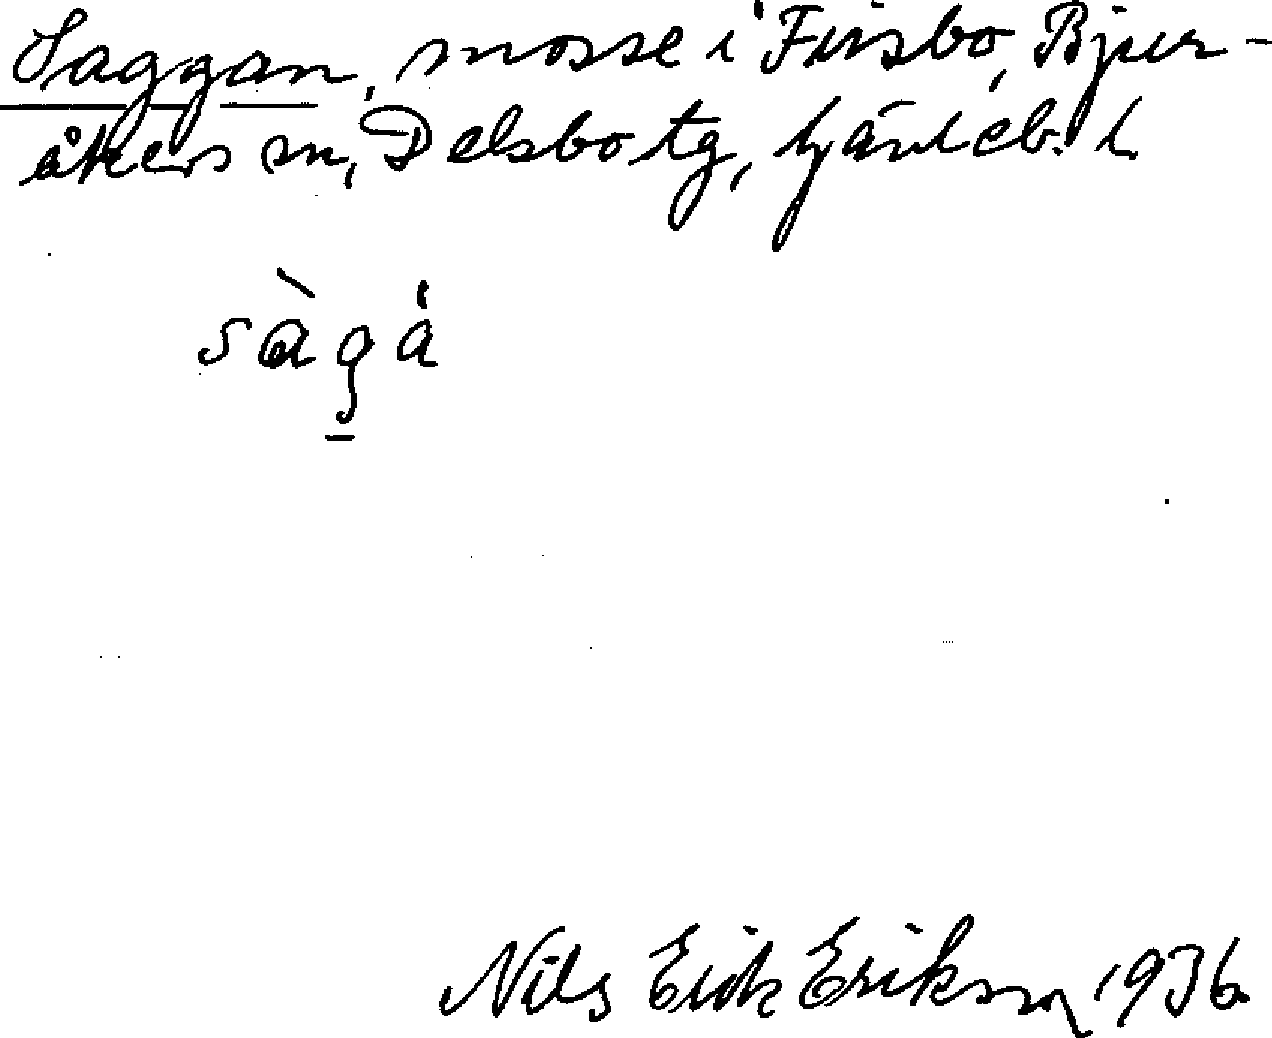 Saggan, mosse i Fursbo, Bjur-
åkers sn, Delsbo tg, Gävleb. l.
sàgá
Nils Erik Erikson 1936